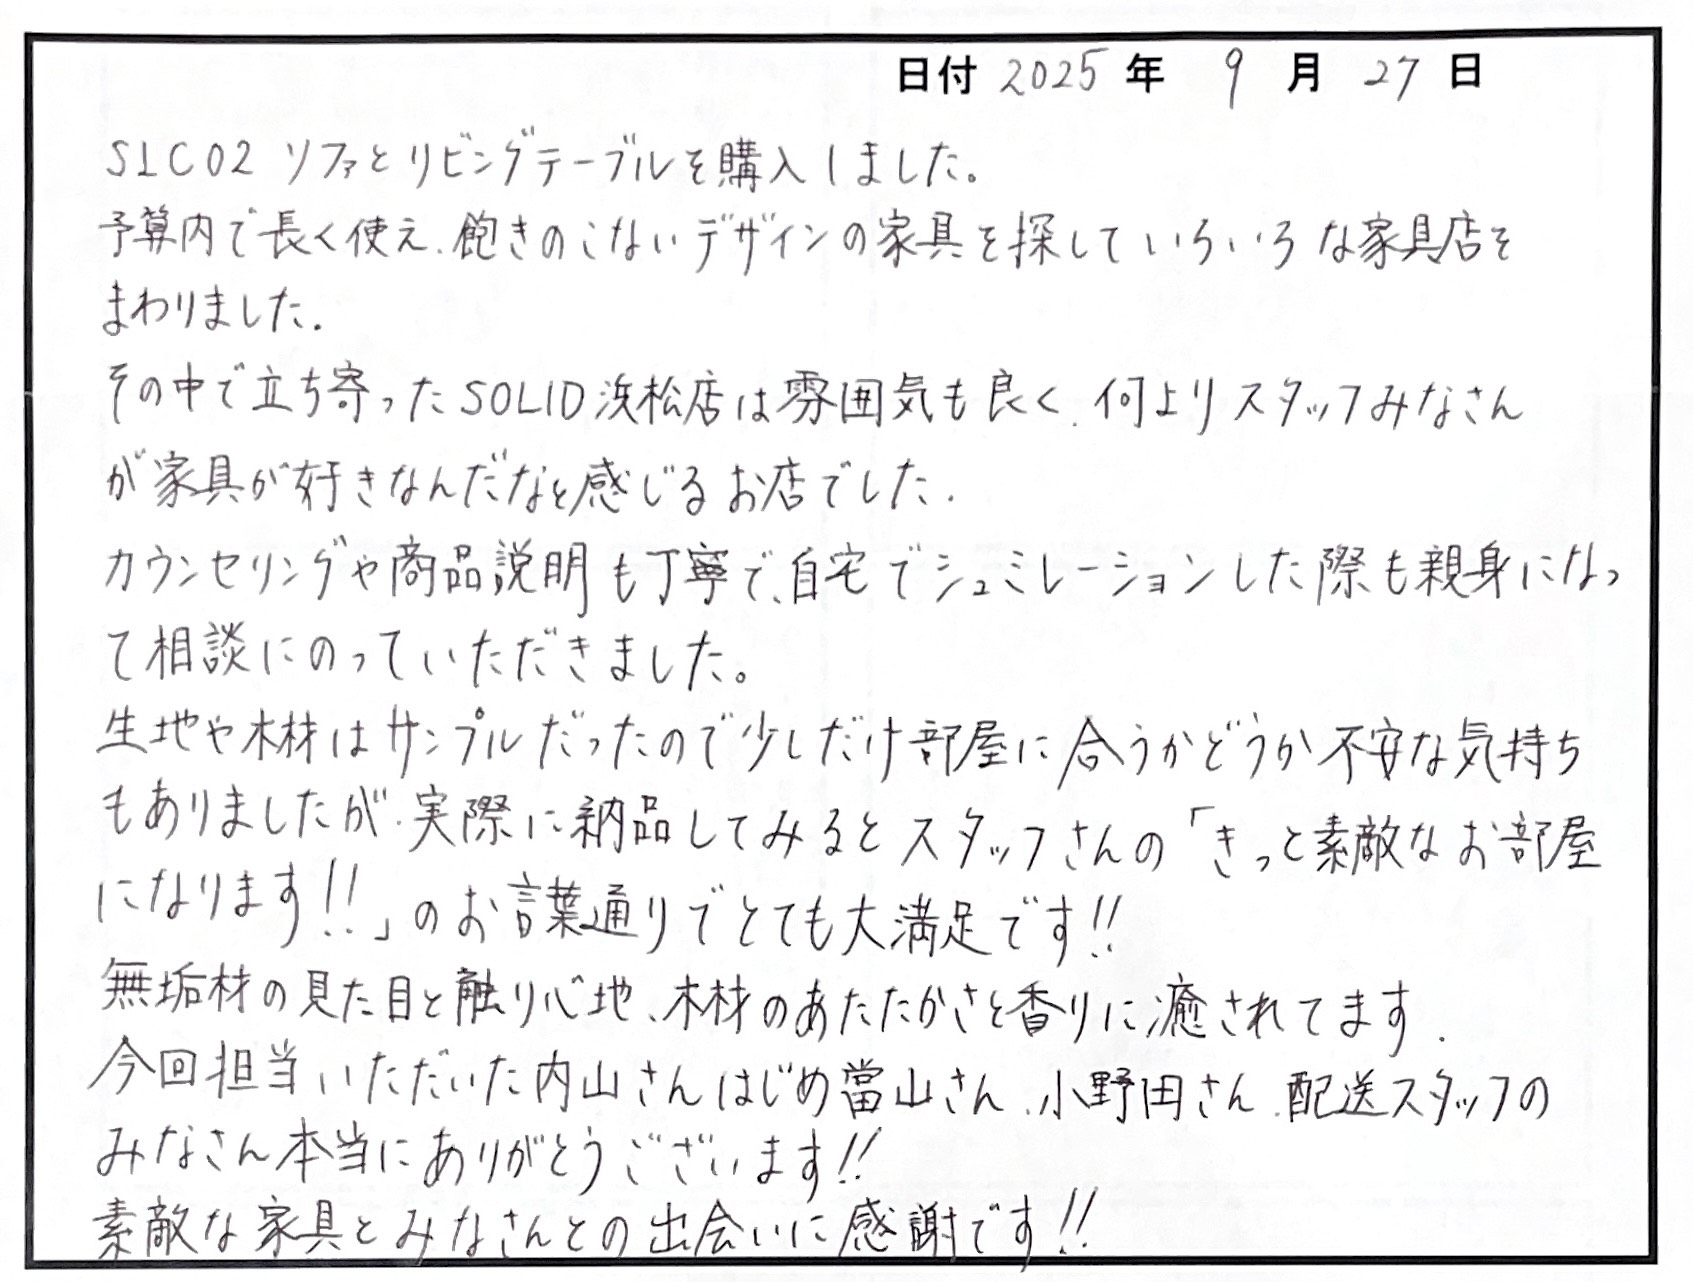 日付 2025 年 9 月 27 日
SLC02 ソファとリビングテーブルを購入しました。
予算内で長く使え、飽きのこないデザインの家具を探していろいろな家具店を
まわりました。
その中で立ち寄ったSOLID浜松店は雰囲気も良く、何よりスタッフみなさん
が家具が好きなんだなと感じるお店でした。
カウンセリングや商品説明も丁寧で、自宅でシュミレーションした際も親身になっ
て相談にのっていただきました。
生地や木材はサンプルだったので少しだけ部屋に合うかどうか不安な気持ち
もありましたが、実際に納品してみるとスタッフさんの「きっと素敵なお部屋
になります!!」のお言葉通りでとても大満足です!!
無垢材の見た目と触り心地、木材のあたたかさと香りに癒されてます。
今回担当いただいた内山さんはじめ當山さん、小野田さん、配送スタッフの
みなさん本当にありがとうございます!!
素敵な家具とみなさんとの出会いに感謝です!!